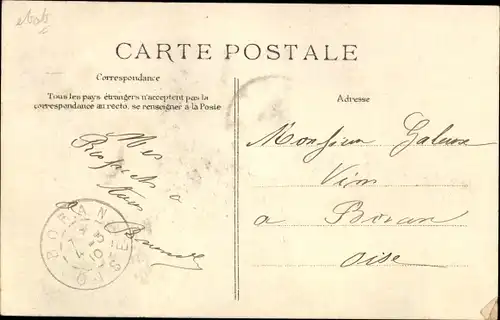 CARTE POSTALE
Correspondance
Tous les pays étrangers n'acceptent pas la
correspondance au recto, se renseigner à la Poste
Mes
Respects à
tous
BORAN
OISE
Adresse
Monsieur
Vins
a Boran
Oise